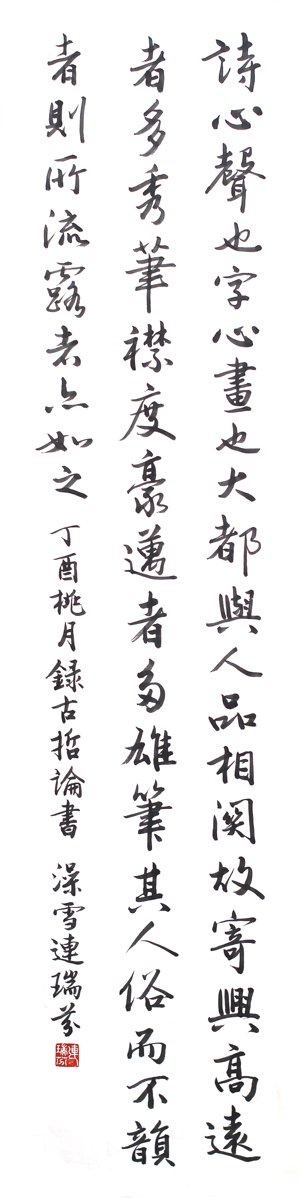 詩心聲也字心畫也大都與人品相関故寄興高遠
者多秀筆襟度豪邁者多雄筆其人俗而不韻
者則所流露者亦如之
丁酉桃月録古哲論書 澡雪連瑞芬
連瑞芬